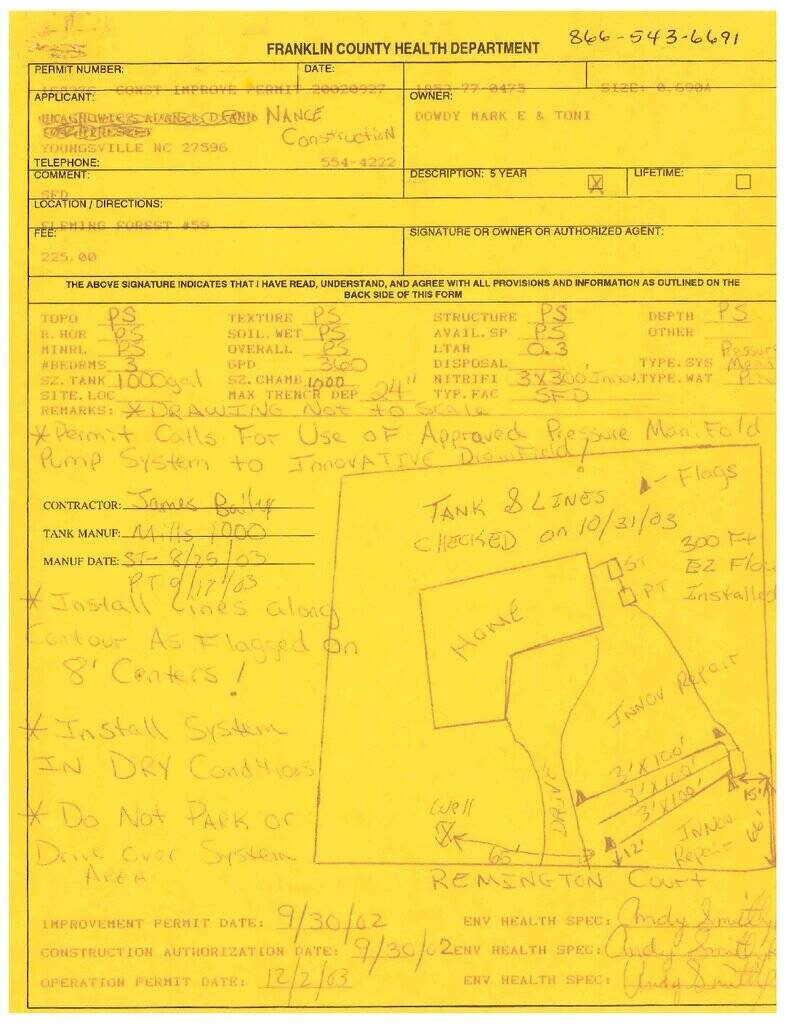 866-543-6691
FRANKLIN COUNTY HEALTH DEPARTMENT
PERMIT NUMBER: DATE:
CONST IMPROVE PERMIT 20020927 1853-77-0475 SIZE: 0.690A
APPLICANT: OWNER:
NANCE Construction DOWDY MARK E & TONI
YOUNGSVILLE NC 27596
TELEPHONE: 554-4222
COMMENT: DESCRIPTION: 5 YEAR X LIFETIME:
SFD
LOCATION / DIRECTIONS:
FLEMING FOREST #59
FEE: SIGNATURE OR OWNER OR AUTHORIZED AGENT:
225.00
THE ABOVE SIGNATURE INDICATES THAT I HAVE READ, UNDERSTAND, AND AGREE WITH ALL PROVISIONS AND INFORMATION AS OUTLINED ON THE
BACK SIDE OF THIS FORM
TOPO PS TEXTURE PS STRUCTURE PS DEPTH PS
R.HOR PS SOIL.WET PS AVAIL.SP PS OTHER
MINRL PS OVERALL PS LTAR 0.3
#BEDRMS 3 GPD 360 DISPOSAL TYPE.SYS
SZ.TANK 1000gal SZ.CHAMB 1000 NITRIFI 3X300' Innov. TYPE.WAT
SITE.LOC MAX TRENCH DEP 24" TYP.FAC SFD
REMARKS: * DRAWING Not to Scale
* Permit Calls For Use of Approved Pressure Manifold
Pump System to INNOVATIVE Drainfield!
CONTRACTOR: James Baily
TANK MANUF: Mills 1000
MANUF DATE: ST- 8/25/03
PT 9/17/03
* Install Lines along
Contour As Flagged on
8' Centers!
* Install System
IN DRY Conditions
* Do Not PARK or
Drive over System
AREA
- Flags
TANK & LINES
CHECKED on 10/31/03
300 Ft
EZ Flow
Installed
ST
PT
HOME
INNOV Repair
3'X100'
3'X100'
3'X100'
DRIVE
Well
65'
12'
INNOV
Repair
15'
66'
REMINGTON Court
IMPROVEMENT PERMIT DATE: 9/30/02 ENV HEALTH SPEC: Andy Smith
CONSTRUCTION AUTHORIZATION DATE: 9/30/02 ENV HEALTH SPEC: Andy Smith
OPERATION PERMIT DATE: 12/2/03 ENV HEALTH SPEC: Andy Smith